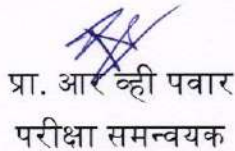 प्रा. आर व्ही पवार
परीक्षा समन्वयक